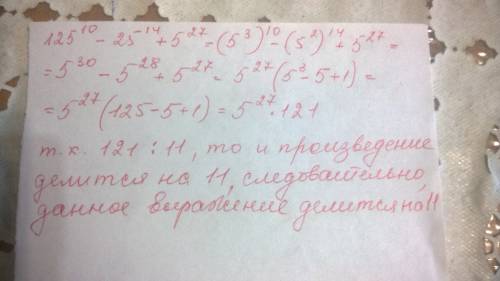 125¹⁰ - 25⁻¹⁴ + 5²⁷ = (5³)¹⁰ - (5²)¹⁴ + 5²⁷ =
= 5³⁰ - 5²⁸ + 5²⁷ = 5²⁷(5³ - 5 + 1) =
= 5²⁷(125 - 5 + 1) = 5²⁷ · 121
т.к. 121 : 11, то и произведение
делится на 11, следовательно,
данное выражение делится на 11